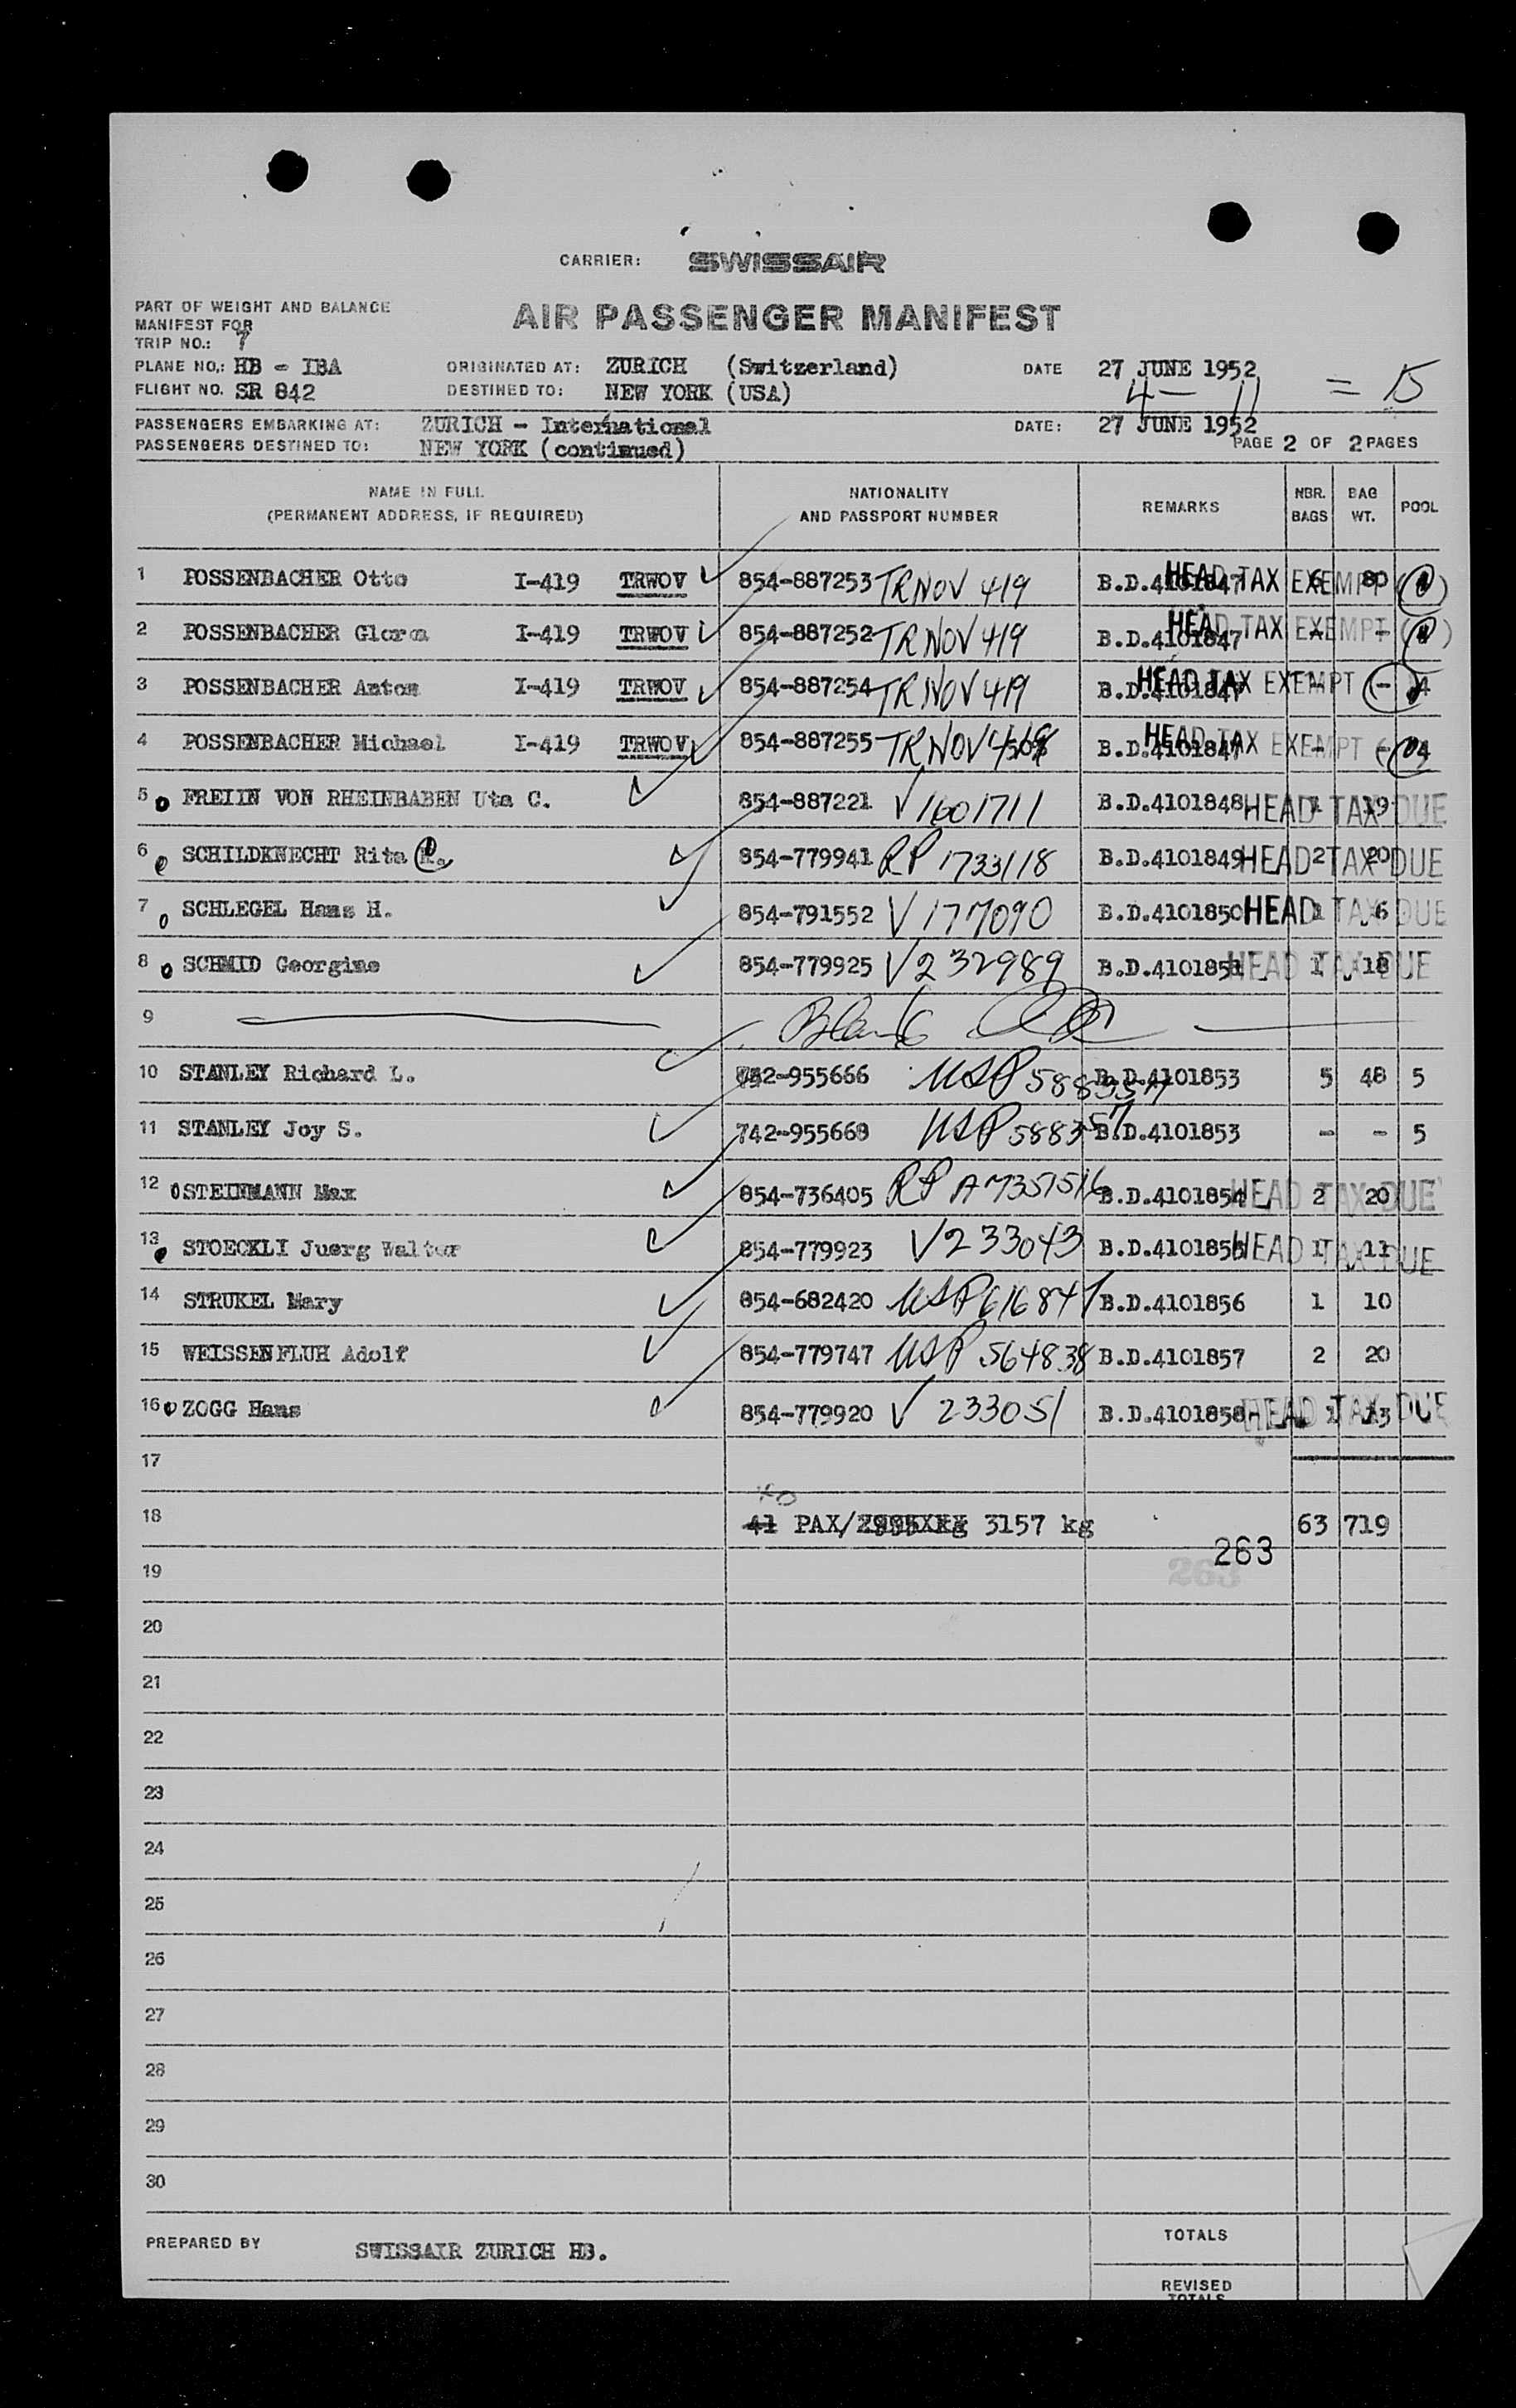 CARRIER: SWISSAIR
PART OF WEIGHT AND BALANCE
MANIFEST FOR
AIR PASSENGER MANIFEST
TRIP NO.: 7
PLANE NO.: HB - IBA ORIGINATED AT: ZURICH (Switzerland) DATE 27 JUNE 1952
FLIGHT NO. SR 842 DESTINED TO: NEW YORK (USA) 4 — 11 = 15
PASSENGERS EMBARKING AT: ZURICH - International DATE: 27 JUNE 1952
PASSENGERS DESTINED TO: NEW YORK (continued) PAGE 2 OF 2 PAGES
NAME IN FULL NATIONALITY REMARKS NBR. BAG POOL
(PERMANENT ADDRESS, IF REQUIRED) AND PASSPORT NUMBER BAGS WT.
1 POSSENBACHER Otto I-419 TRWOV 854-887253 TRNOV 419 B.D.4101847 HEAD TAX EXEMPT 6 80
2 POSSENBACHER I-419 TRWOV 854-887252 TRNOV 419 B.D.4101847 HEAD TAX EXEMPT - -
3 POSSENBACHER Anton I-419 TRWOV 854-887254 TRNOV 419 B.D.4101847 HEAD TAX EXEMPT - - 4
4 POSSENBACHER Michael I-419 TRWOV 854-887255 TRNOV B.D.4101847 HEAD TAX EXEMPT - - 4
5 FREIIN VON RHEINBABEN Uta C. 854-887221 V1601711 B.D.4101848 HEAD TAX DUE 1 19
6 SCHILDKNECHT Rita 854-779941 RP 1733118 B.D.4101849 HEAD TAX DUE 2 20
7 SCHLEGEL Hans H. 854-791552 V 177090 B.D.4101850 HEAD TAX DUE 1 6
8 SCHMID Georgine 854-779925 V232989 B.D.4101851 HEAD TAX DUE 1 18
9 Blank
10 STANLEY Richard L. 742-955666 USP 588357 B.D.4101853 5 48 5
11 STANLEY Joy S. 742-955668 USP 588357 B.D.4101853 - - 5
12 STEINMANN Max 854-736405 RP A7357516 B.D.4101854 HEAD TAX DUE 2 20
13 STOECKLI Juerg Walter 854-779923 V233043 B.D.4101855 HEAD TAX DUE 1 11
14 STRUKEL Mary 854-682420 USP 616847 B.D.4101856 1 10
15 WEISSENFLUH Adolf 854-779747 USP 564838 B.D.4101857 2 20
16 ZOGG Hans 854-779920 V 233051 B.D.4101858 HEAD TAX DUE 1 13
17
40
18 41 PAX/ 3157 kg 63 719
263
19 263
20
21
22
23
24
25
26
27
28
29
30
PREPARED BY SWISSAIR ZURICH HB. TOTALS
REVISED
TOTALS